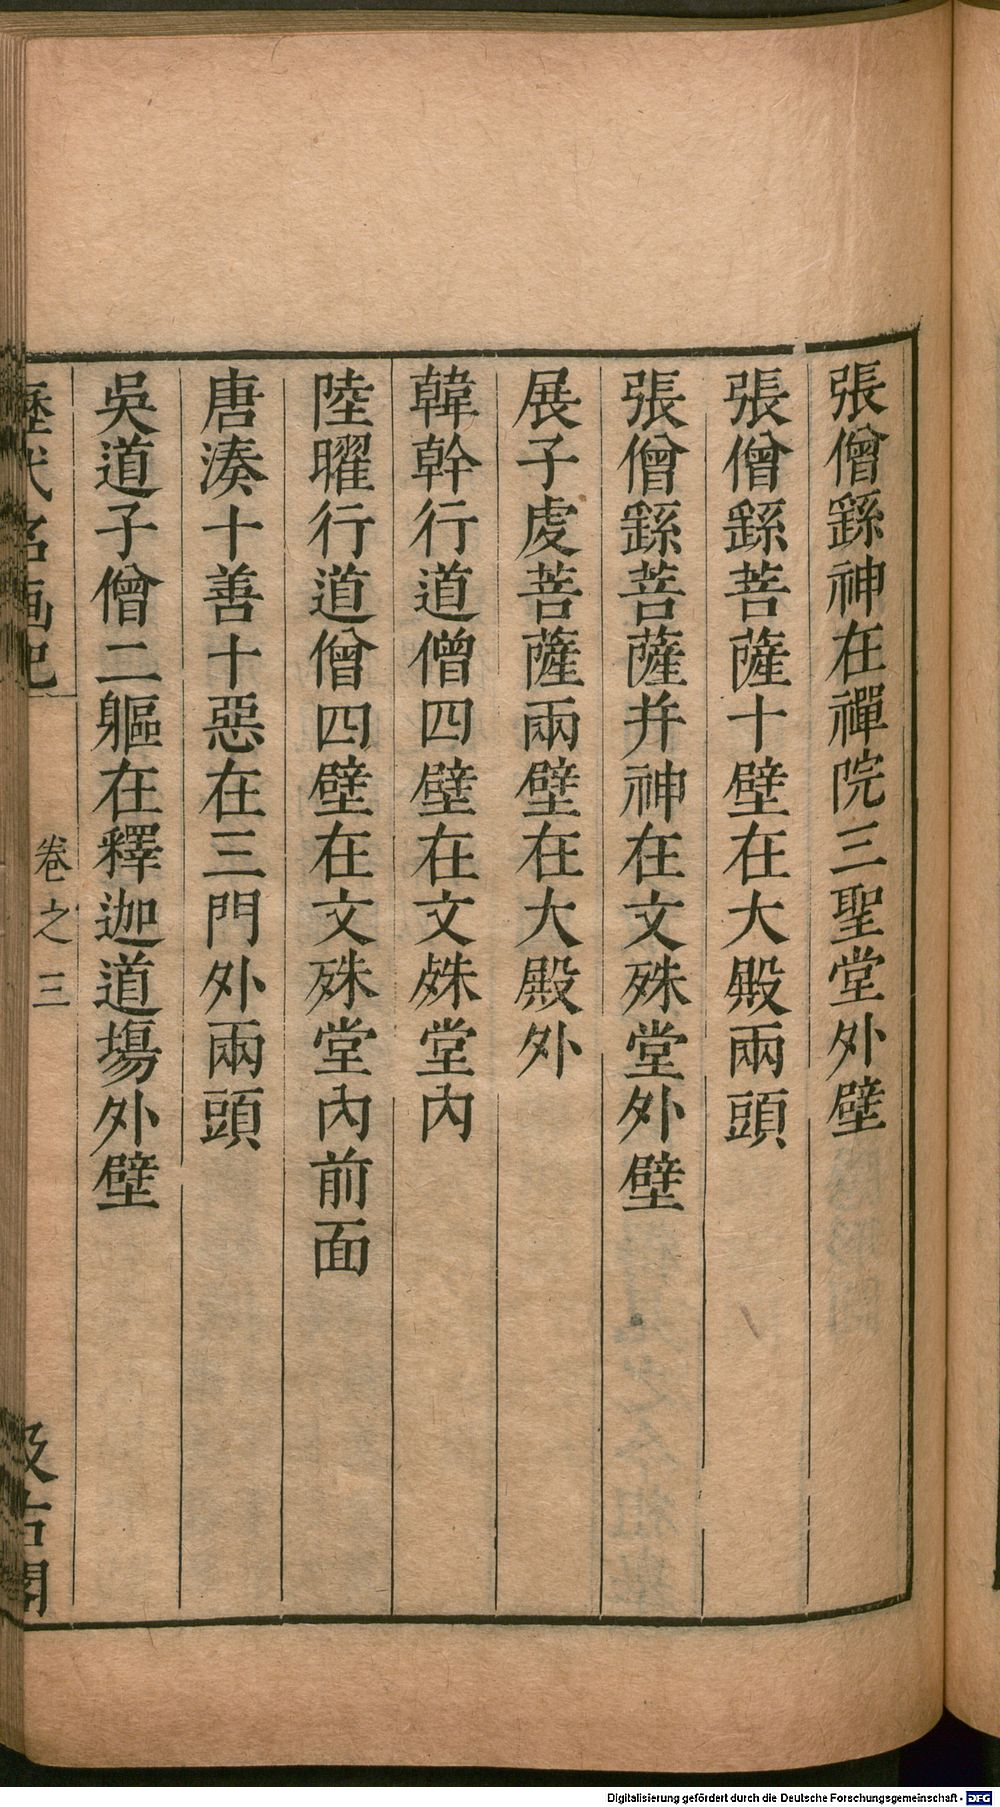 張僧繇神在禪院三聖堂外壁
張僧繇菩薩十壁在大殿兩頭
張僧繇菩薩并神在文殊堂外壁
展子虔菩薩兩壁在大殿外
韓幹行道僧四壁在文殊堂內
陸曜行道僧四壁在文殊堂內前面
唐湊十善十惡在三門外兩頭
吳道子僧二軀在釋迦道場外壁
歷代名画記
卷之三
汲古閣
Digitalisierung gefördert durch die Deutsche Forschungsgemeinschaft - DFG